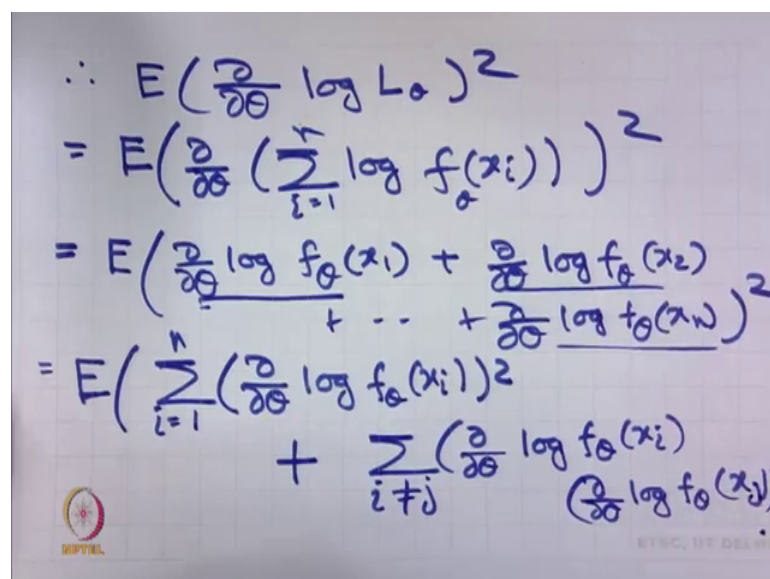 ∴ E(∂/∂θ log L_θ)²
= E(∂/∂θ (∑_{i=1}^{n} log f_θ(x_i)))²
= E(∂/∂θ log f_θ(x_1) + ∂/∂θ log f_θ(x_2)
+ ‥ + ∂/∂θ log f_θ(x_n))²
= E(∑_{i=1}^{n} (∂/∂θ log f_θ(x_i))²
+ ∑_{i≠j} (∂/∂θ log f_θ(x_i)
(∂/∂θ log f_θ(x_j)
NPTEL
ETSC, IIT DELHI